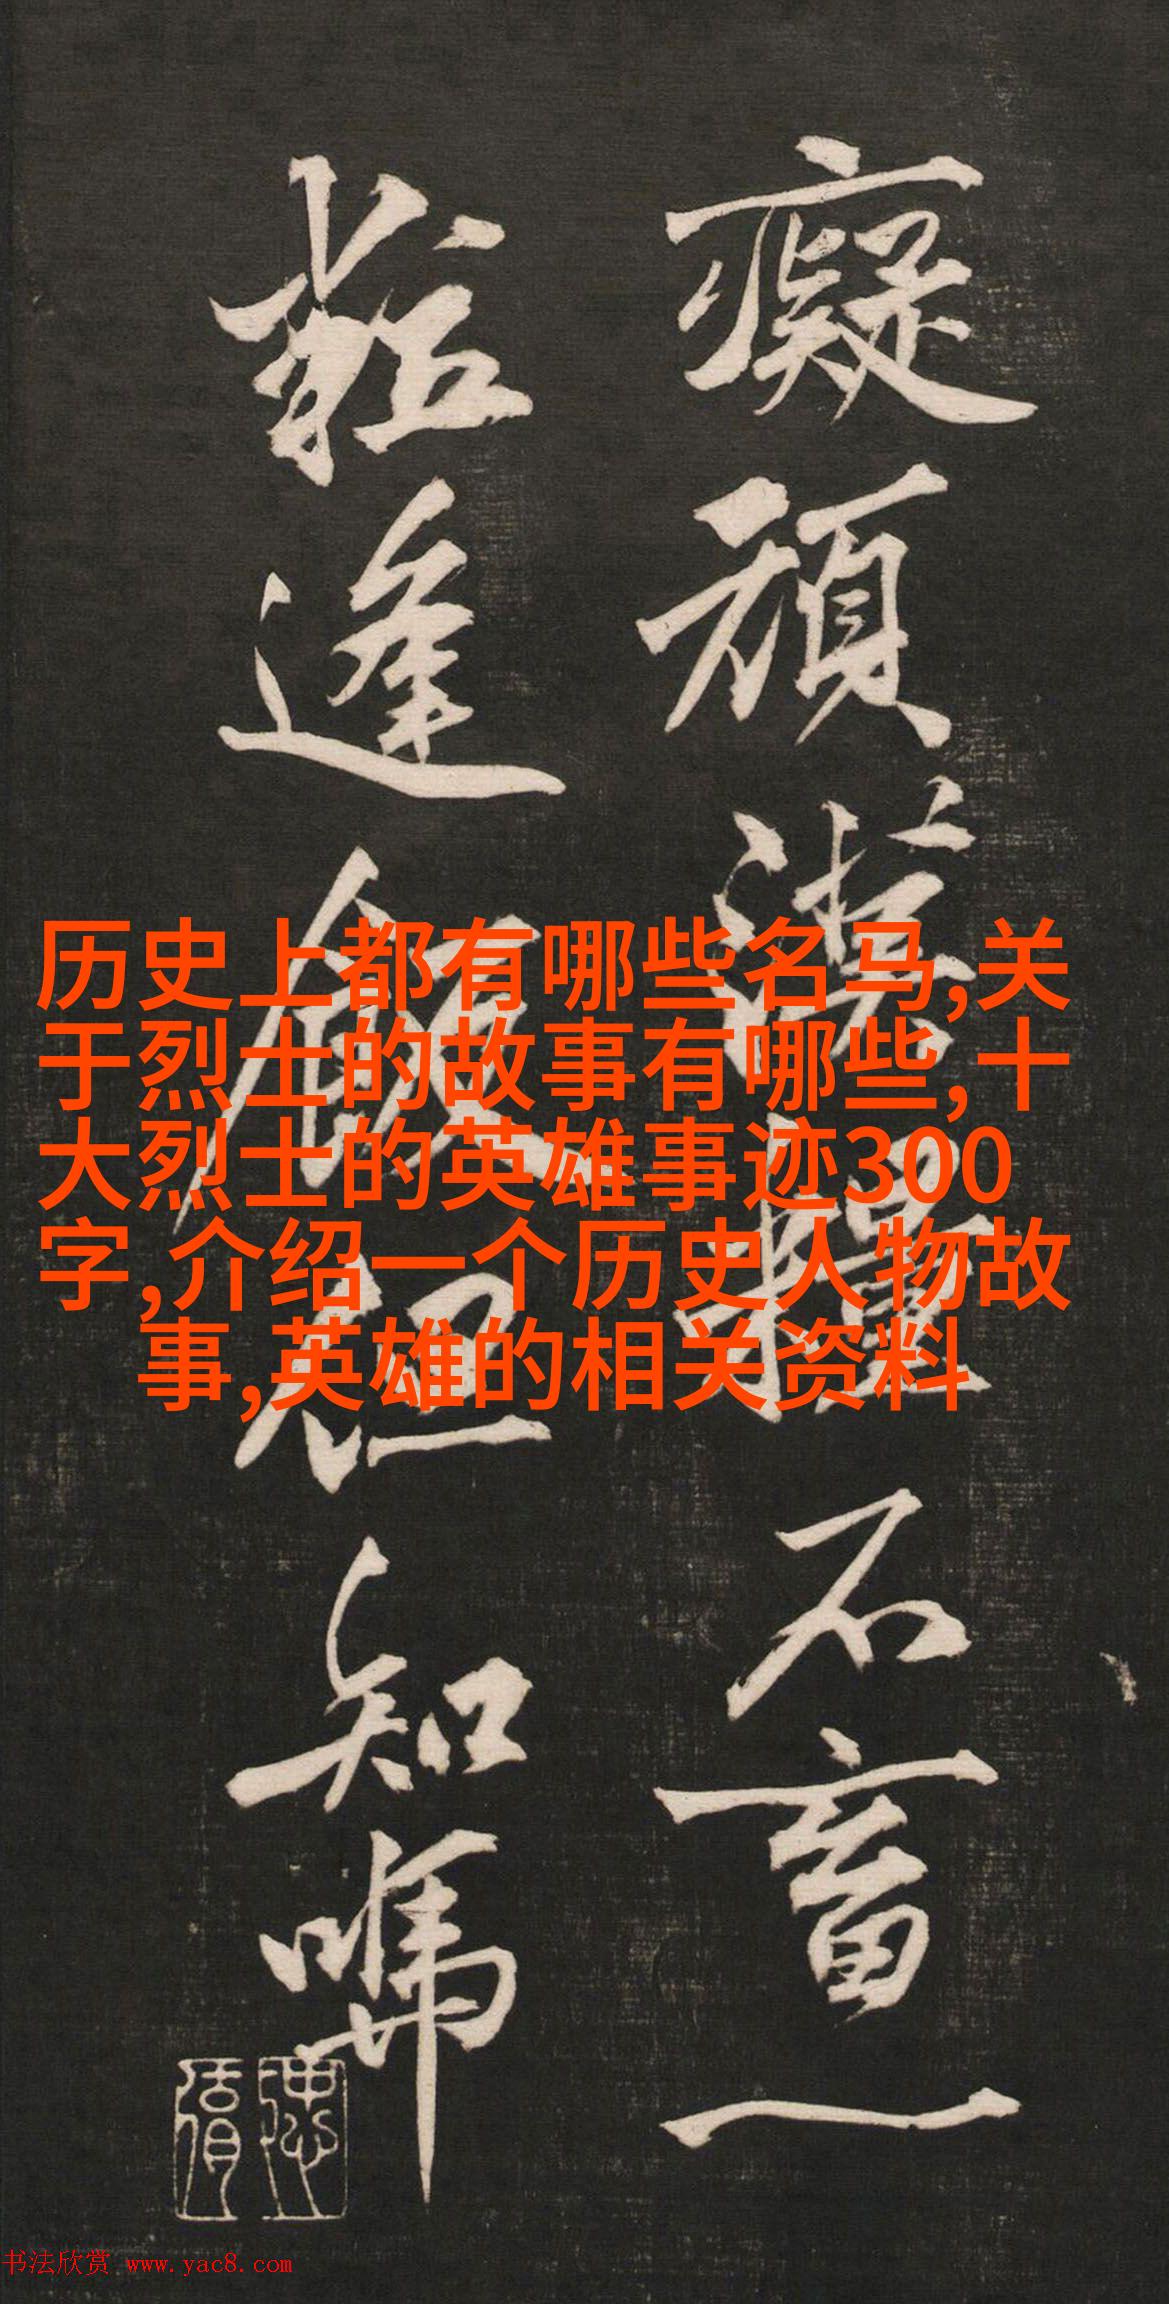 癡頑石畜一
逢飯但知
历史上都有哪些名马,关
于烈士的故事有哪些,十
大烈士的英雄事迹300
字,介绍一个历史人物故
事,英雄的相关资料
书法欣赏 www.yac8.com